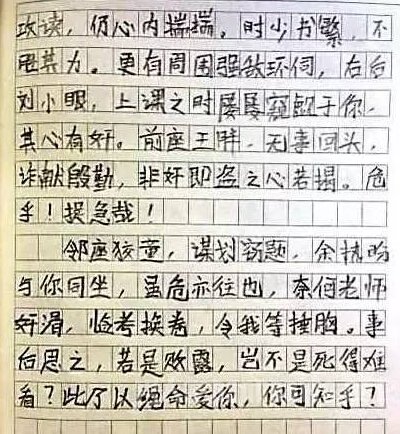 攻读，仍心内揣揣。时少书繁，不
甩其力。更有周围强敌环伺，右台
刘小眼，上课之时屡屡窥觎于你，
其心有奸。前座王胖，无事回头，
诈献殷勤，非奸即盗之心若揭。危
乎！提急哉！
邻座狡童，谋划窃题，余
与你同坐，虽危亦往也，奈何老师
奸滑，临考换卷，令我等捶胸。事
后思之，若是败露，岂不是死得难
看？此乃以绳命爱你，你可知乎？